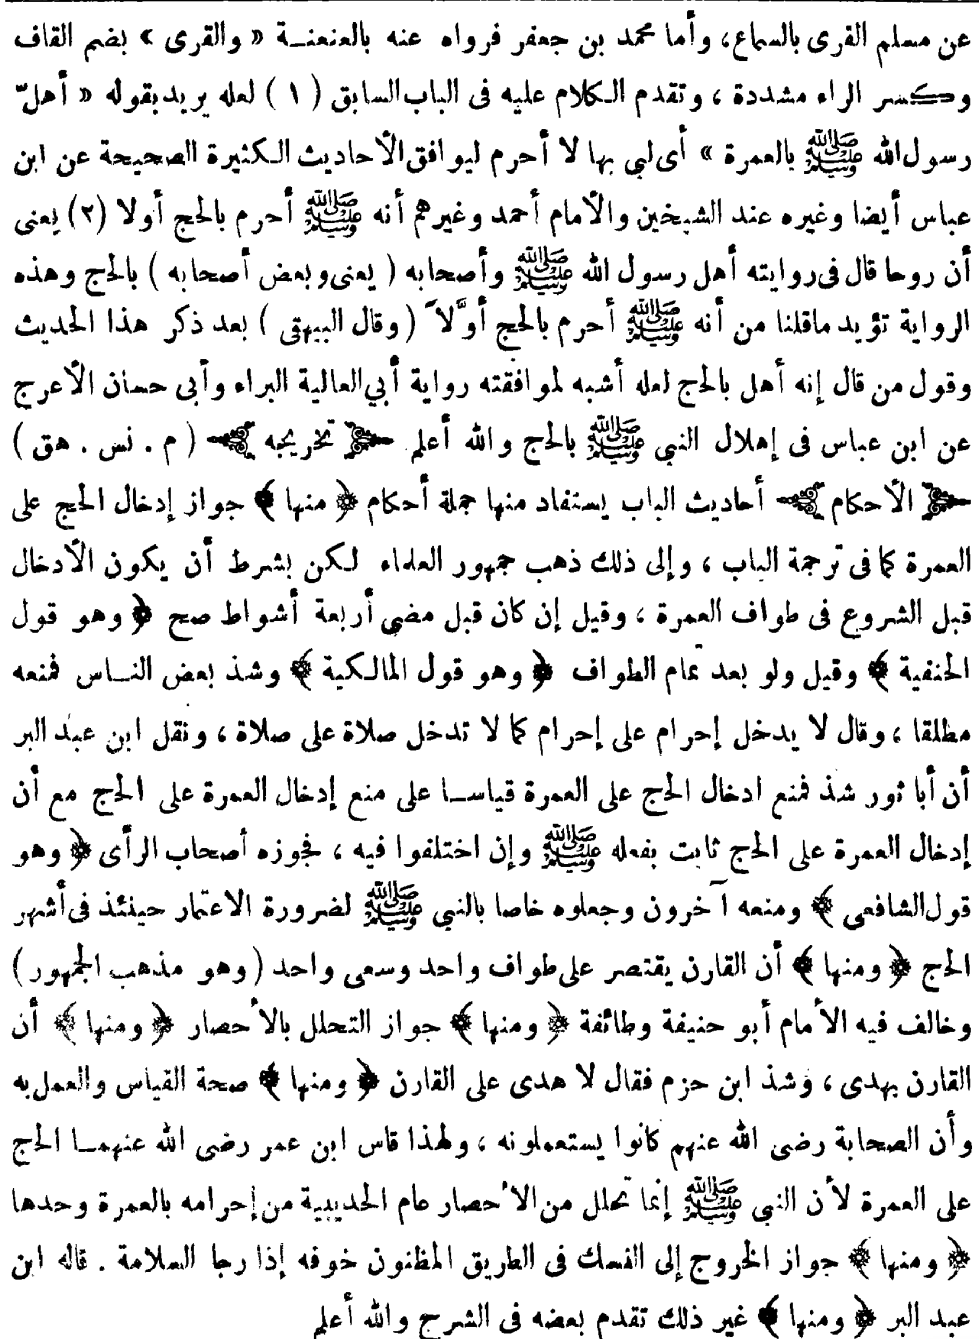 عن مسلم القرى بالسماع، وأما محمد بن جعفر فرواه عنه بالعنعنة « والقرى » بضم القاف
وكسر الراء مشددة ، وتقدم الكلام عليه فى الباب السابق (١) لعله يريد بقوله « أهلّ
رسول الله ﷺ بالعمرة » أى لبى بها لا أحرم ليوافق الأحاديث الكثيرة الصحيحة عن ابن
عباس أيضا وغيره عند الشيخين والأمام أحمد وغيرهم أنه ﷺ أحرم بالحج أولا (٢) يعنى
أن روحا قال فى روايته أهل رسول الله ﷺ وأصحابه ( يعنى وبعض أصحابه ) بالحج وهذه
الرواية تؤيد ماقلنا من أنه ﷺ أحرم بالحج أوَّلاً ( وقال البيهقى ) بعد ذكر هذا الحديث
وقول من قال إنه أهل بالحج لعله أشبه لموافقته رواية أبى العالية البراء وأبى حسان الأعرج
عن ابن عباس فى إهلال النبى ﷺ بالحج والله أعلم ﴿ تخريجه ﴾ ( م . نس . هق )
﴿ الأحكام ﴾ أحاديث الباب يستفاد منها جملة أحكام ﴿ منها ﴾ جواز إدخال الحج على
العمرة كما فى ترجمة الباب ، وإلى ذلك ذهب جمهور العلماء لكن بشرط أن يكون الأدخال
قبل الشروع فى طواف العمرة ، وقيل إن كان قبل مضى أربعة أشواط صح ﴿ وهو قول
الحنفية ﴾ وقيل ولو بعد تمام الطواف ﴿ وهو قول المالكية ﴾ وشذ بعض الناس فمنعه
مطلقا ، وقال لا يدخل إحرام على إحرام كما لا تدخل صلاة على صلاة ، ونقل ابن عبد البر
أن أبا ثور شذ فمنع ادخال الحج على العمرة قياسا على منع إدخال العمرة على الحج مع أن
إدخال العمرة على الحج ثابت بفعله ﷺ وإن اختلفوا فيه ، فجوزه أصحاب الرأى ﴿ وهو
قول الشافعى ﴾ ومنعه آخرون وجعلوه خاصا بالنبى ﷺ لضرورة الاعتمار حينئذ فى أشهر
الحج ﴿ ومنها ﴾ أن القارن يقتصر على طواف واحد وسعى واحد (وهو مذهب الجمهور)
وخالف فيه الأمام أبو حنيفة وطائفة ﴿ ومنها ﴾ جواز التحلل بالأحصار ﴿ ومنها ﴾ أن
القارن يهدى ، وشذ ابن حزم فقال لا هدى على القارن ﴿ ومنها ﴾ صحة القياس والعمل به
وأن الصحابة رضى الله عنهم كانوا يستعملونه ، ولهذا قاس ابن عمر رضى الله عنهما الحج
على العمرة لأن النبى ﷺ إنما تحلل من الأحصار عام الحديبية من إحرامه بالعمرة وحدها
﴿ ومنها ﴾ جواز الخروج إلى النسك فى الطريق المظنون خوفه إذا رجا السلامة . قاله ابن
عبد البر ﴿ ومنها ﴾ غير ذلك تقدم بعضه فى الشرح والله أعلم